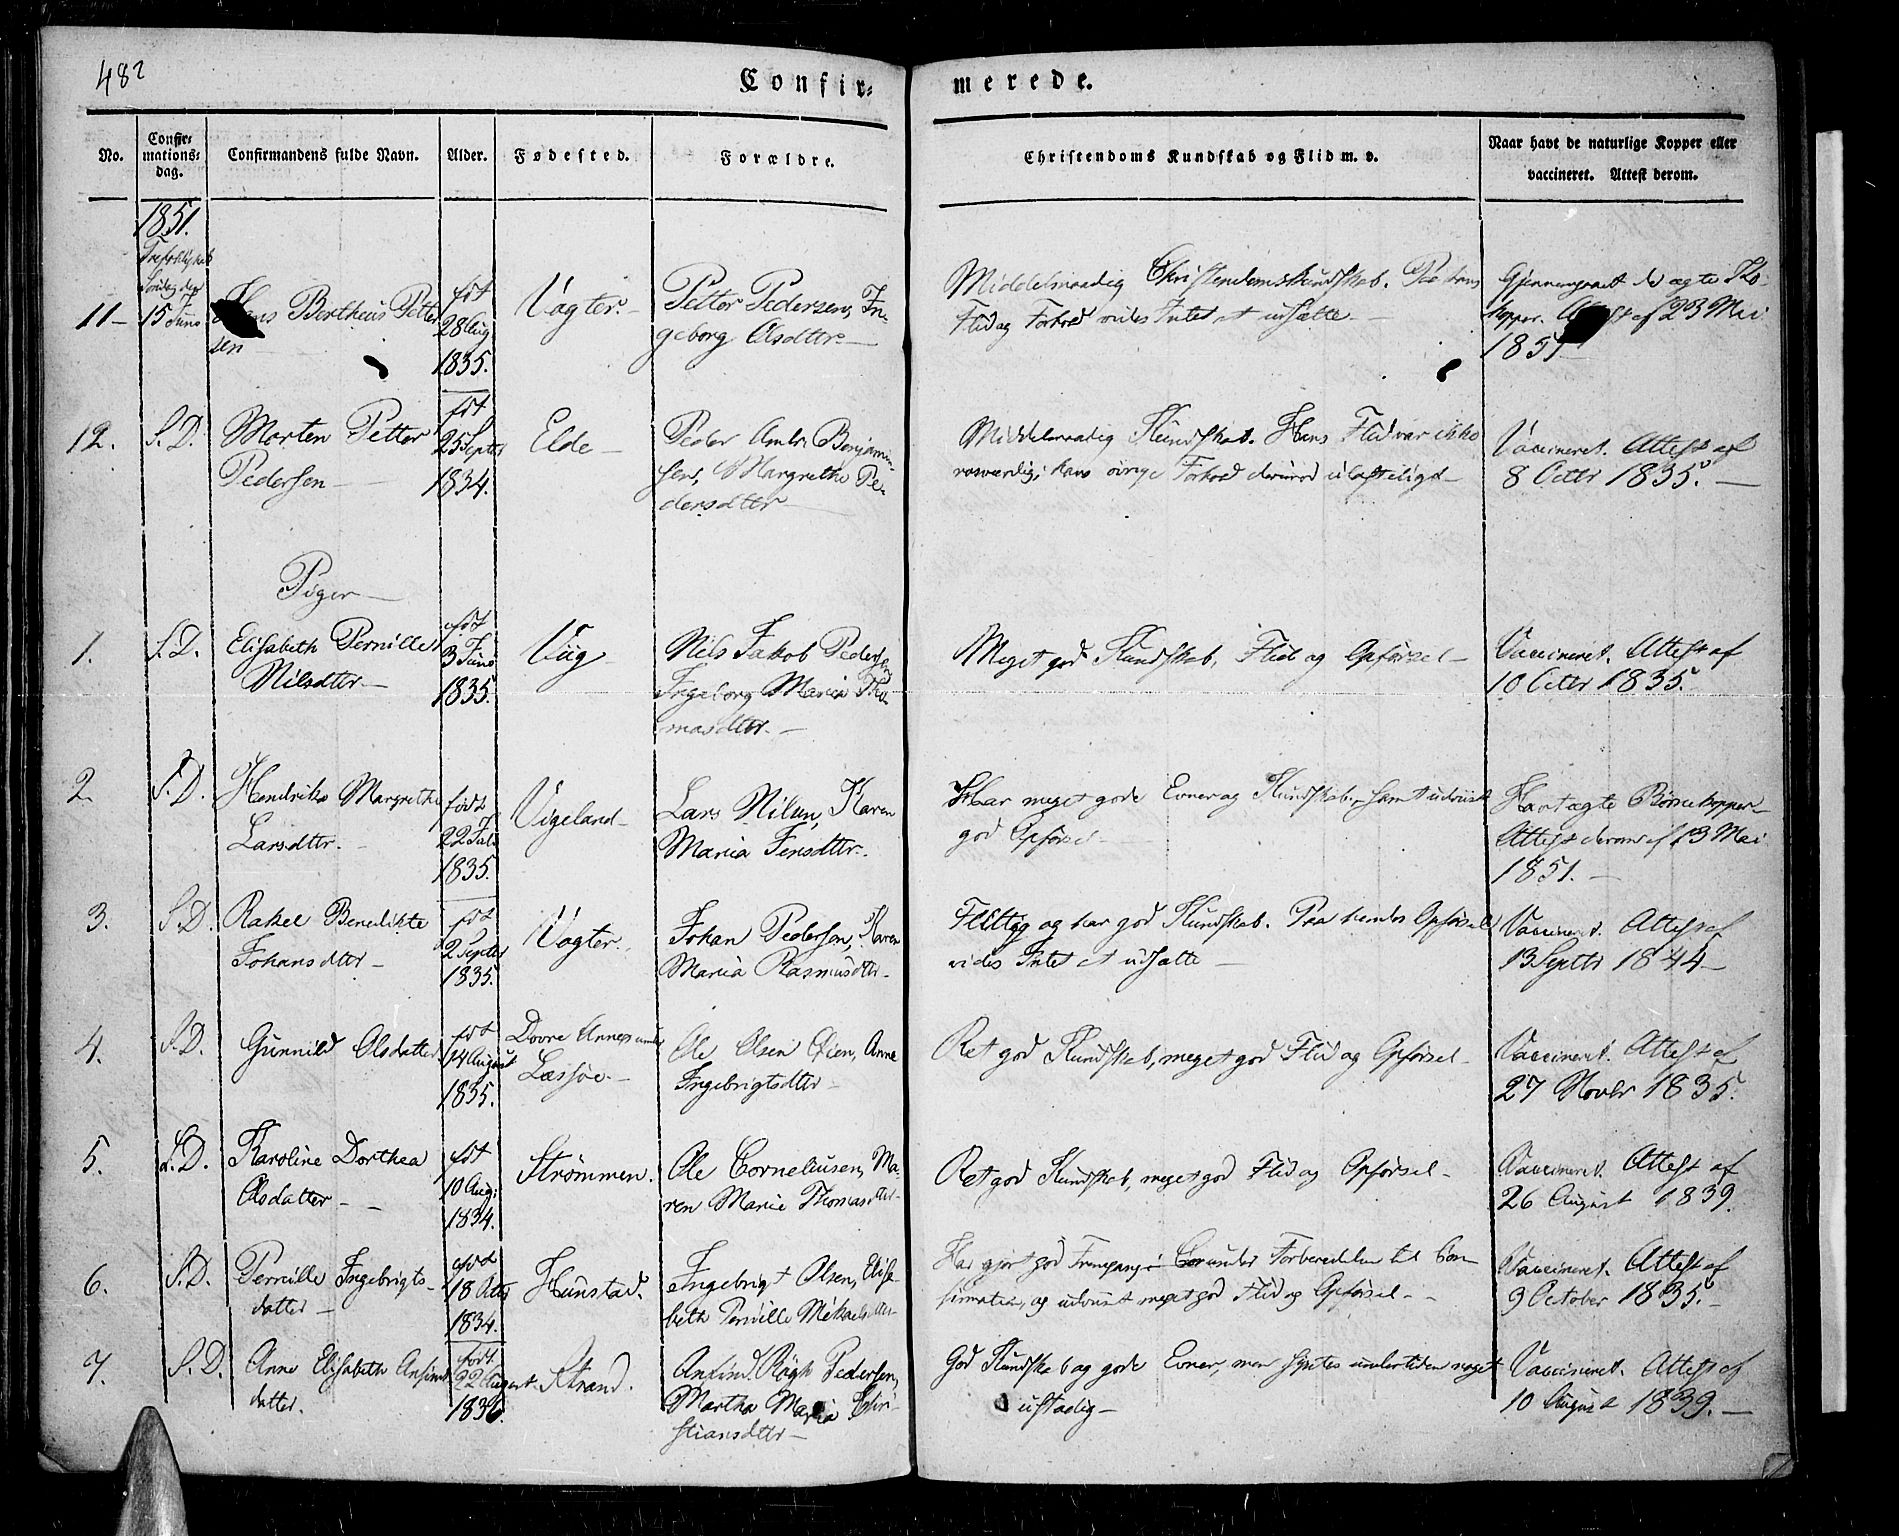 482
Confir=
merede.
No.
Confir=
mations=
dag.
Confirmandens fulde Navn.
Alder.
Fødested.
Forældre.
Christendoms Kundskab og Flid m. v.
Naar havt de naturlige Kopper eller
vaccineret. Attest derom.
1851.
Søndag den
11- 15 Juni Hans Bertheus Petter
sen
født
28 Aug
1835.
Vagter.
Petter Pedersen, In-
geborg Olsdtter
Middelmaadig Christendomskundskab. Paa hans
Flid og Forhold vides Intet at udsætte
Gjennemgaaet de ægte Ko-
pper. Attest af 23 Mai
1851
12. S. D. Morten Petter
Pedersen
født
25 Septer
1834.
Elde
Peder Benjamin-
sen, Margrethe Pe-
dersdtter
Middelmaadig Kundskab. Hans Flid var ikke
rosværdig; hans øvrige Forhold derimod ulasteligt
Vaccineret. Attest af
8 Octbr 1835.
Piger
1. S. D. Elisabeth Pernille
Nilsdtter
født
3 Juni
1835.
Vüg
Nils Jakob Pedersen
Ingeborg Maria Tho-
masdtter.
Meget god Kundskab, Flid og Opførsel
Vaccineret. Attest af
10 Octbr 1835.
2. S. D. Hendrikke Margrethe
Larsdtter.
født
22 Juli
1835.
Vigeland
Lars Nilsen, Karen
Maria Jensdtter.
Har meget gode Evner og Kundskaber, samt udviist
god Opførsel
Havt ægte Børnekopper
Attest derom af 13 Mai
1851.
3. S. D. Rakel Benedikte
Johansdtter
født
2 Septer
1835.
Vagter.
Johan Pedersen, Karen
Maria Rasmusdtter
Flittig og har god Kundskab. Paa hendes Opførsel
vides Intet at udsætte
Vaccineret. Attest af
13 Septbr 1844
4. S. D. Gunnild Olsdatter
født
14 August
1835.
Dovre Annex under
Læssøe.
Ole Olsen Øien, Anne
Ingebrigtsdtter
Ret god Kundskab, meget god Flid og Opførsel
Vaccineret. Attest af
27 Novbr 1835.
5. S. D. Karoline Dorthea
Olsdatter
født
10 Aug:
1834.
Strømmen.
Ole Corneliusen, Ma-
ren Marie Thomasdtter
Ret god Kundskab, meget god Flid og Opførsel
Vaccineret. Attest af
26 August 1839.
6. S. D. Pernille Ingebrigts-
datter
født
18 Octbr
1834.
Hunstad.
Ingebrigt Olsen, Elisa-
beth Pernille Mikkelsdtter
Har gjort god Fremgang under Forberedelsen til Con-
firmation, og udviist meget god Flid og Opførsel
Vaccineret. Attest af
9 October 1835.
7. S. D. Anne Elisabeth Anfinds
datter.
født
22 August
1836.
Strand.
Anfind Røgh Pedersen,
Martha Maria Chri-
stiansdtter
God Kundskab og gode Evner, men syntes undertiden noget
ustadig
Vaccineret. Attest af
10 August 1839.